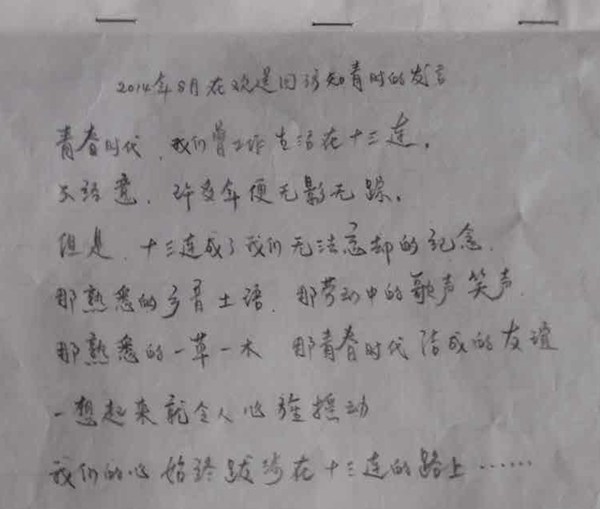 2014年8月在欢迎回访知青时的发言
青春时代，我们曾工作生活在十三连。
不经意，许多年便无影无踪。
但是，十三连成了我们无法忘却的纪念。
那熟悉的乡音土语，那劳动中的歌声笑声
那熟悉的一草一木 那青春时代结成的友谊
一想起来就令人心旌摇动
我们的心始终跋涉在十三连的路上……